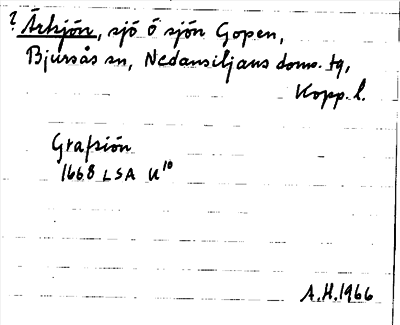 ? Ärtsjön, sjö Ö sjön Gopen,
Bjursås sn, Nedansiljans doms. tg,
Kopp. l.
Grafsiön
1668 LSA U10
A.H. 1966